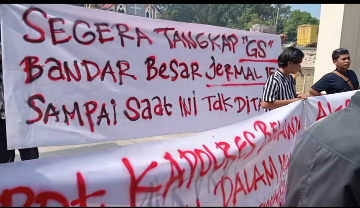 SEGERA TANGKAP "GS"
BANDAR BESAR JERMAL
SAMPAI SAAT INI TDK DITA
KAPOLRES
DALAM